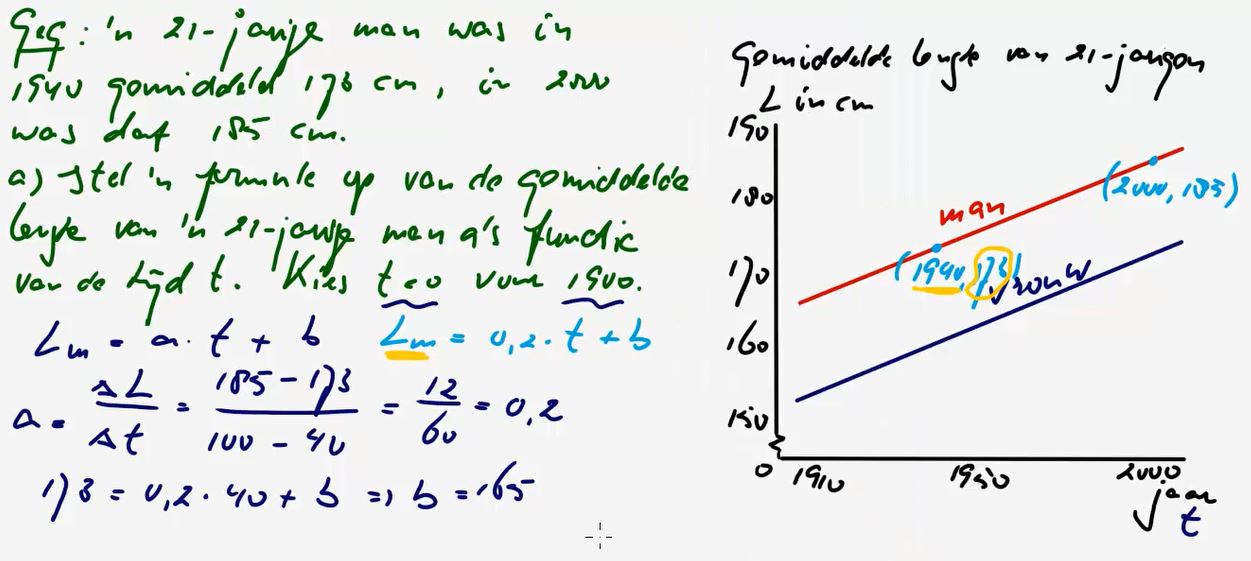 Geg: 'n 21-jarige man was in
1940 gemiddeld 173 cm, in 2000
was dat 185 cm.
a) Stel 'n formule op van de gemiddelde
lengte van 'n 21-jarige man als functie
van de tijd t. Kies t=0 voor 1900.
Lm = a · t + b
Lm = 0,2 · t + b
a = ΔL/Δt = (185 - 173)/(100 - 40) = 12/60 = 0,2
173 = 0,2 · 40 + b => b = 165
Gemiddelde lengte van 21-jarigen
L in cm
190
180
170
160
150
0 1910 1950 2000
jaar
t
man
(2000, 185)
(1940, 173)
vrouw